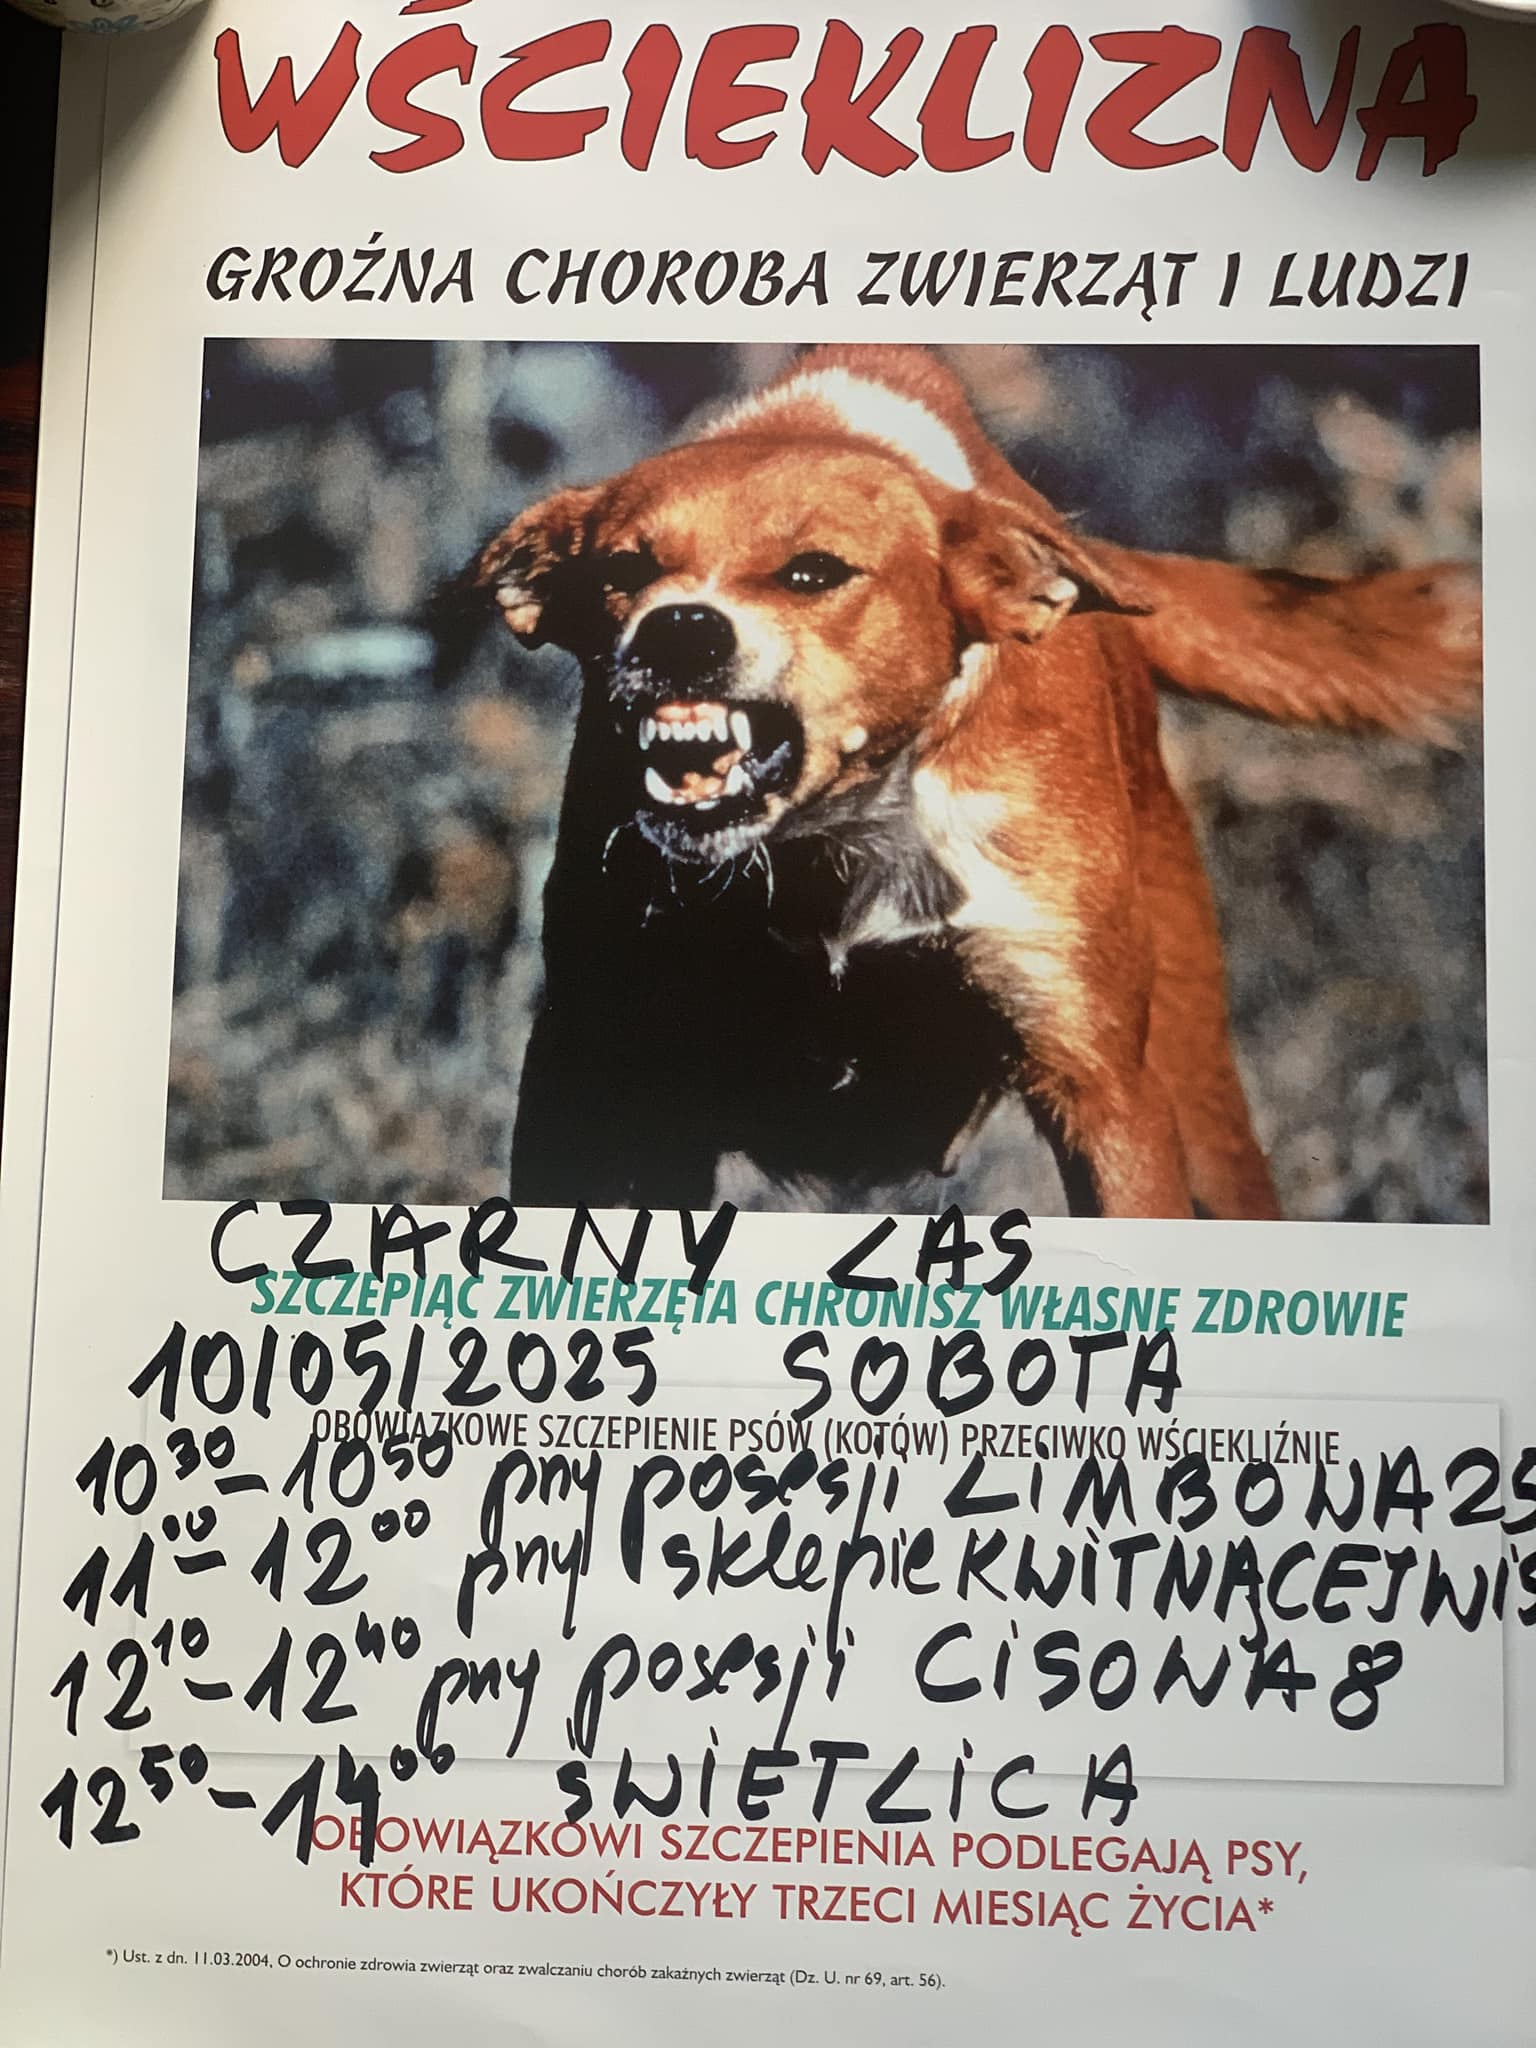 WŚCIEKLIZNA
GROŹNA CHOROBA ZWIERZĄT I LUDZI
CZARNY LAS
SZCZEPIĄC ZWIERZĘTA CHRONISZ WŁASNE ZDROWIE
10/05/2025 SOBOTA
OBOWIĄZKOWE SZCZEPIENIE PSÓW (KOTÓW) PRZECIWKO WŚCIEKLIŹNIE
10³⁰-10⁵⁰ pny posesji LiMBOWA 25
11⁰⁰-12⁰⁰ pny sklepie KWITNĄCEJ Wiś
12¹⁰-12⁴⁰ pny posesji CiSOWA 8
12⁵⁰-14⁰⁰ ŚWIETLiCA
OBOWIĄZKOWI SZCZEPIENIA PODLEGAJĄ PSY,
KTÓRE UKOŃCZYŁY TRZECI MIESIĄC ŻYCIA*
*) Ust. z dn. 11.03.2004, O ochronie zdrowia zwierząt oraz zwalczaniu chorób zakaźnych zwierząt (Dz. U. nr 69, art. 56).